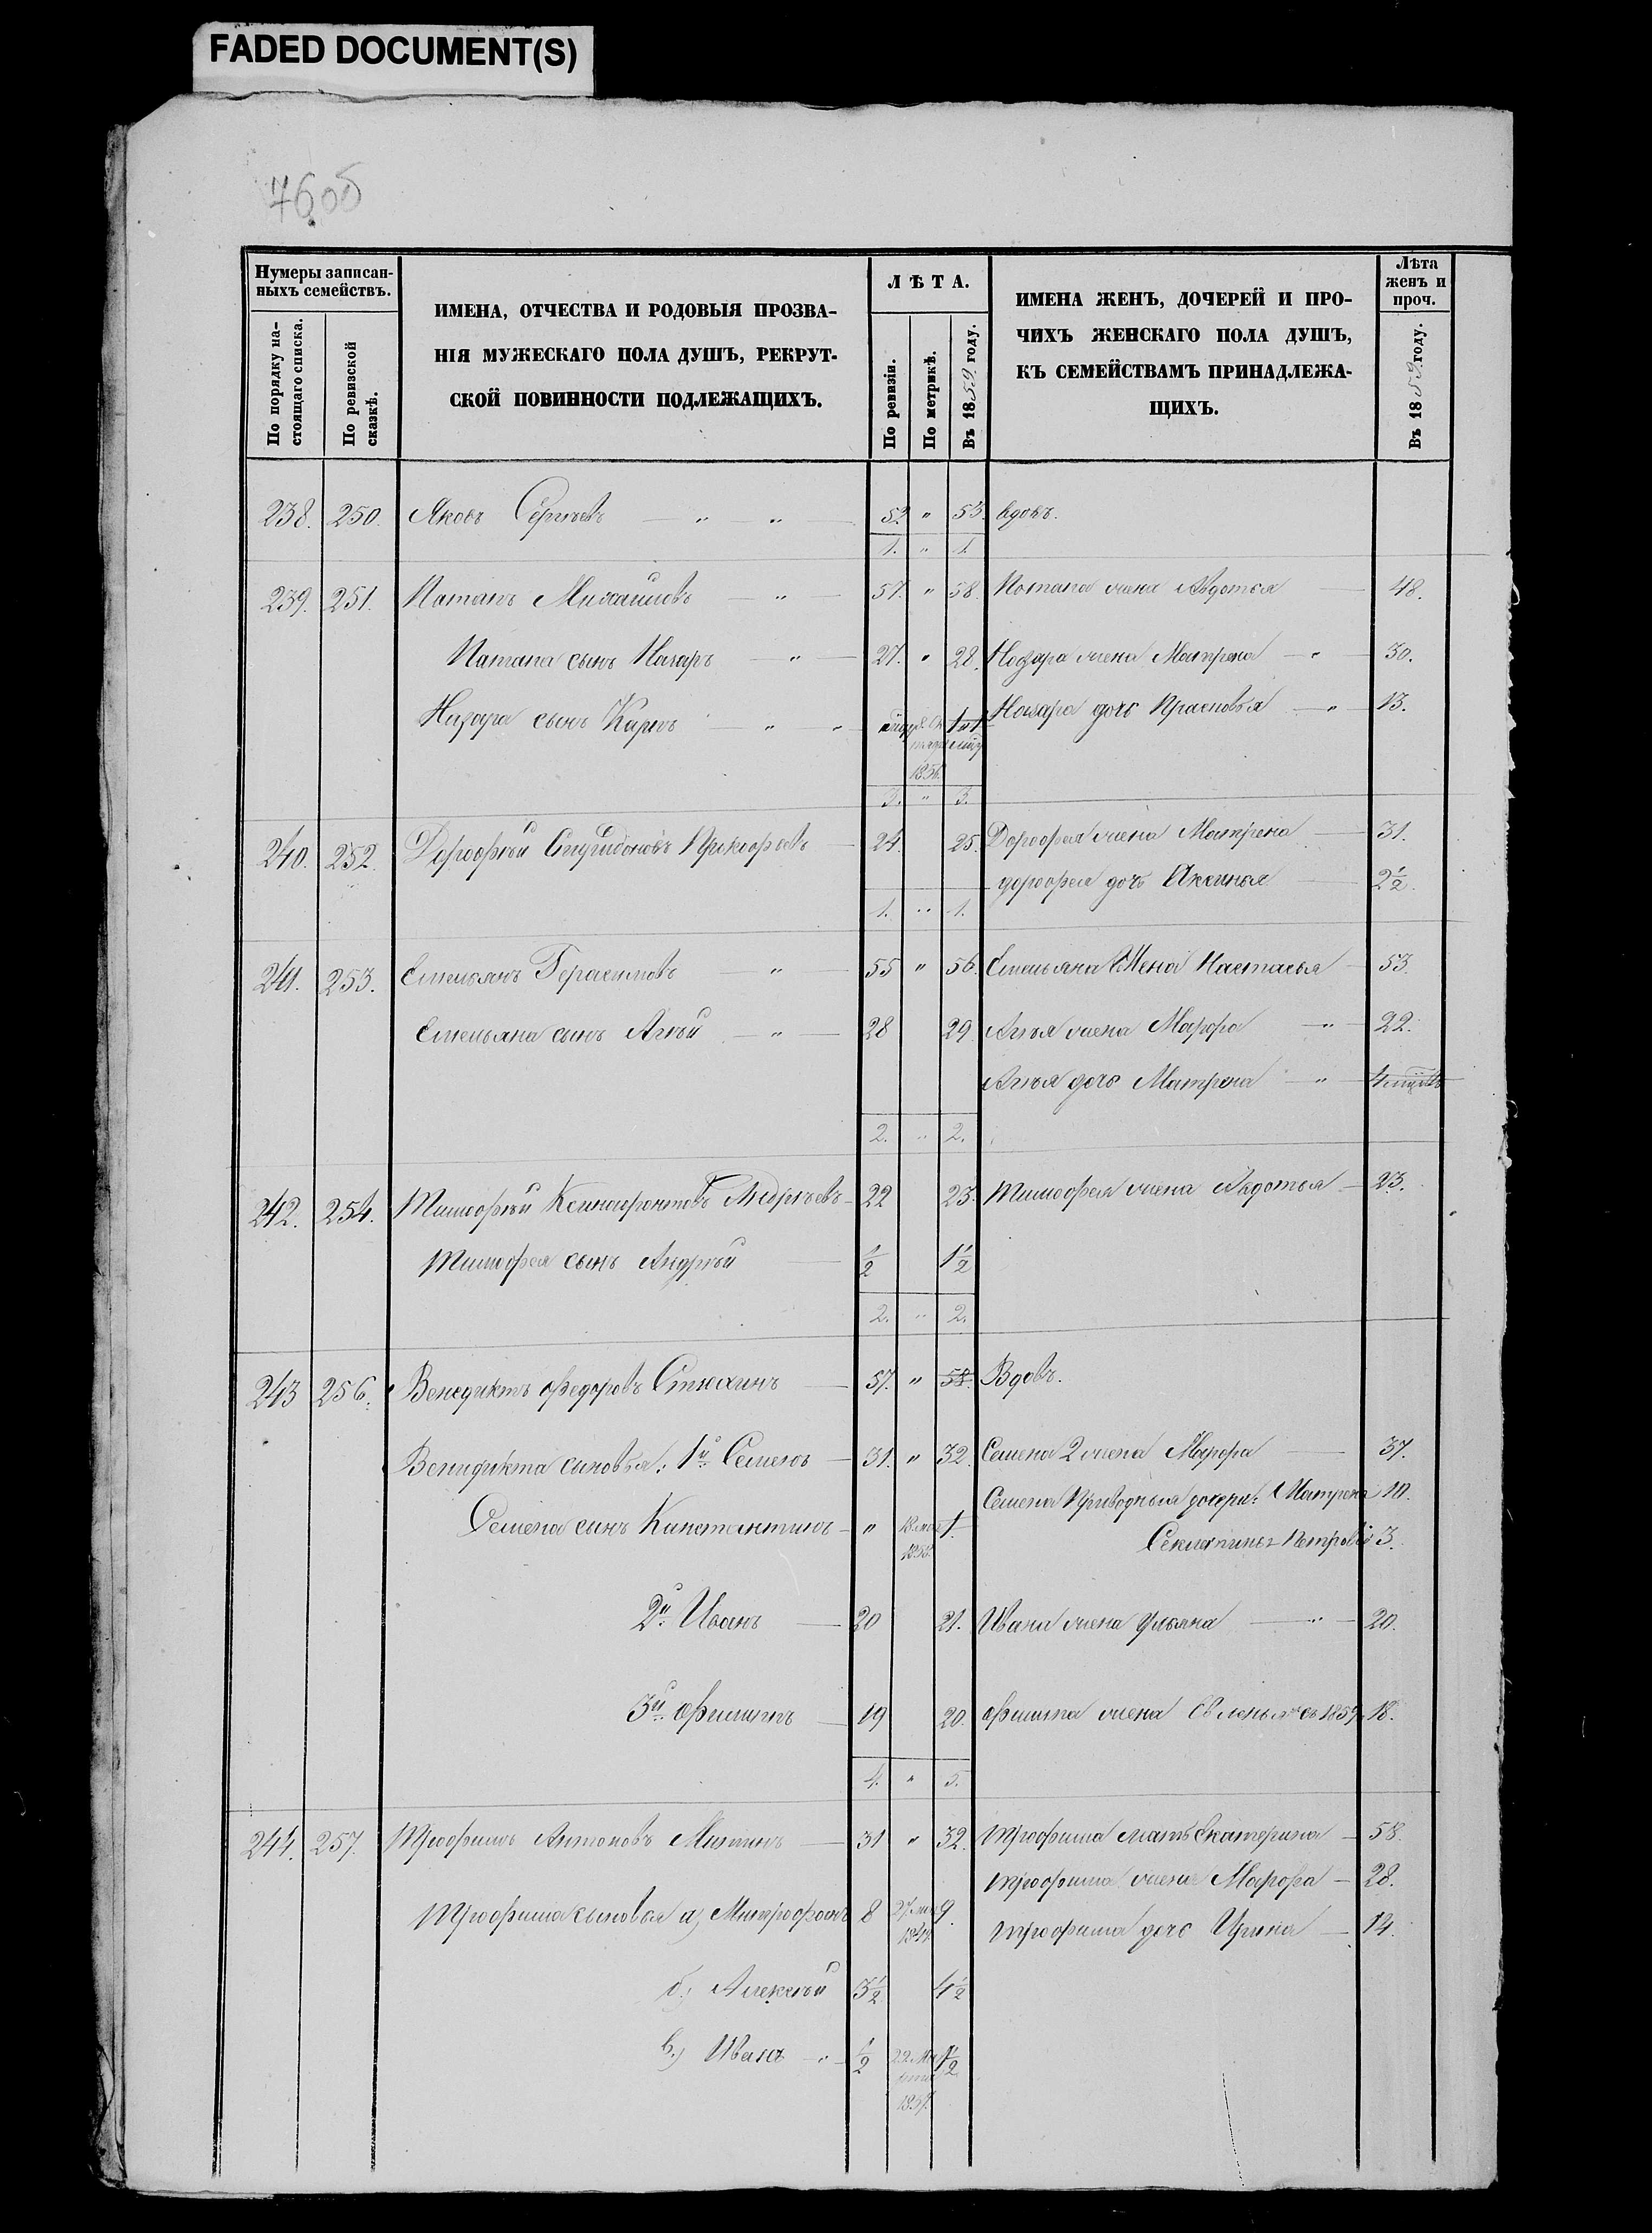 FADED DOCUMENT(S)
7605
Нумеры записан-
ныхъ семействъ.
По порядку на-
стоящаго списка.
По ревизской
сказкѣ.
ИМЕНА, ОТЧЕСТВА И РОДОВЫЯ ПРОЗВА-
НІЯ МУЖЕСКАГО ПОЛА ДУШЪ, РЕКРУТ-
СКОЙ ПОВИННОСТИ ПОДЛЕЖАЩИХЪ.
ЛѢТА.
По ревизіи.
По метрикѣ.
Въ 1859 году.
ИМЕНА ЖЕНЪ, ДОЧЕРЕЙ И ПРО-
ЧИХЪ ЖЕНСКАГО ПОЛА ДУШЪ,
КЪ СЕМЕЙСТВАМЪ ПРИНАДЛЕЖА-
ЩИХЪ.
Лѣта
женъ и
проч.
Въ 1859 году.
238. 250. Яковъ Сергѣевъ — „ „ — 52 „ 53. вдовъ.
1. „ 1.
239. 251. Патапъ Михаиловъ — „ — 57. „ 58. Потапа жена Авдотья — 48.
Патапа сынъ Назаръ — „ — 27. „ 28. Назара жена Матрена — „ — 30.
Назара сынъ Карпъ — „ „ — 1856. Назара дочь Прасковья — „ — 13.
3. „ 3.
240. 252. Дорофѣй Спиридоновъ — 24. 25. Дорофея жена Матрена — 31.
дорофея дочь Аксинья — 2½.
1. „ 1.
241. 253. Емельянъ Герасимовъ „ — 55 „ 56. Емельяна жена Настасья — 53.
Емельяна сынъ Агѣй — „ — 28 29. Агѣя жена Марфа — „ — 22.
Агѣя дочь Матрена — „ —
2. „ 2.
242. 254. Тимофѣй Ксинофонтовъ Андрѣевъ — 22 23. Тимофея жена Авдотья — 23.
Тимофея сынъ Андрѣй — ½ 1½
2. „ 2.
243 256. Венедиктъ Федоровъ — 57. „ 58. Вдовъ.
Венидикта сыновья: 1й Семенъ — 31. „ 32. Семена 2 жена Марфа — 37.
Семена приводныя дочери: Матрена 10.
Семена сынъ Канстантинъ — „ 1.
3.
2й Иванъ — 20 21. Ивана жена Ульяна — „ — 20.
3й Филипъ — 19 20. Филипа жена съ 1859 18.
4. „ 5.
244. 257. Трофимъ Антоновъ Митинъ — 31 „ 32. Трофима мать Екатерина — 58.
Трофима жена Марфа — 28.
Трофима сыновья а) Митрофанъ 8 9. Трофима дочь Ирина — 14.
б) Алексѣй 3½ 4½
в) Иванъ — „ — ½ 1½
1857.